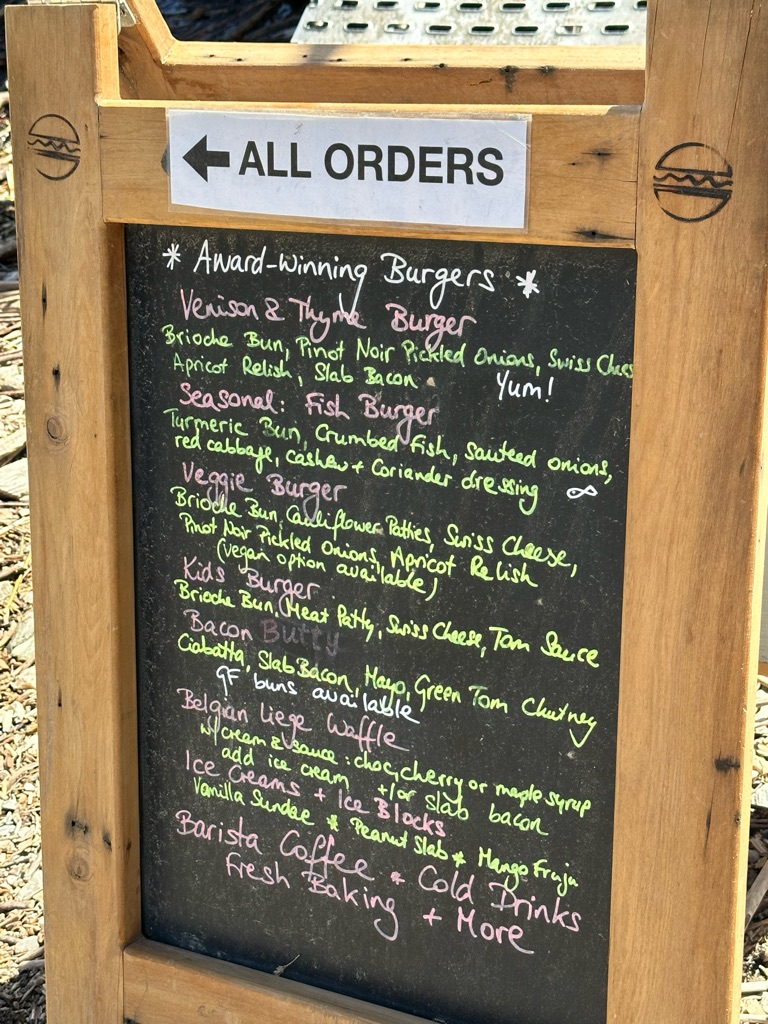 ← ALL ORDERS
* Award-winning Burgers *
Venison & Thyme Burger
Brioche Bun, Pinot Noir Pickled Onions, Swiss Chees
Apricot Relish, Slab Bacon
Yum!
Seasonal: Fish Burger
Turmeric Bun, Crumbed Fish, sauteed onions,
red cabbage, cashew + Coriander dressing
Veggie Burger
Brioche Bun, Cauliflower Patties, Swiss Cheese,
Pinot Noir Pickled Onions, Apricot Relish
(vegan option available)
Kids Burger
Brioche Bun, Meat Patty, Swiss Cheese, Tom Sauce
Bacon Butty
Ciabatta, Slab Bacon, Mayo, Green Tom Chutney
GF buns available
Belgian Liege Waffle
w/ cream & sauce: choc, cherry or maple syrup
add ice cream +/or slab bacon
Ice Creams + Ice Blocks
Vanilla Sundae * Peanut Slab * Mango Fruju
Barista Coffee & Cold Drinks
Fresh Baking + More